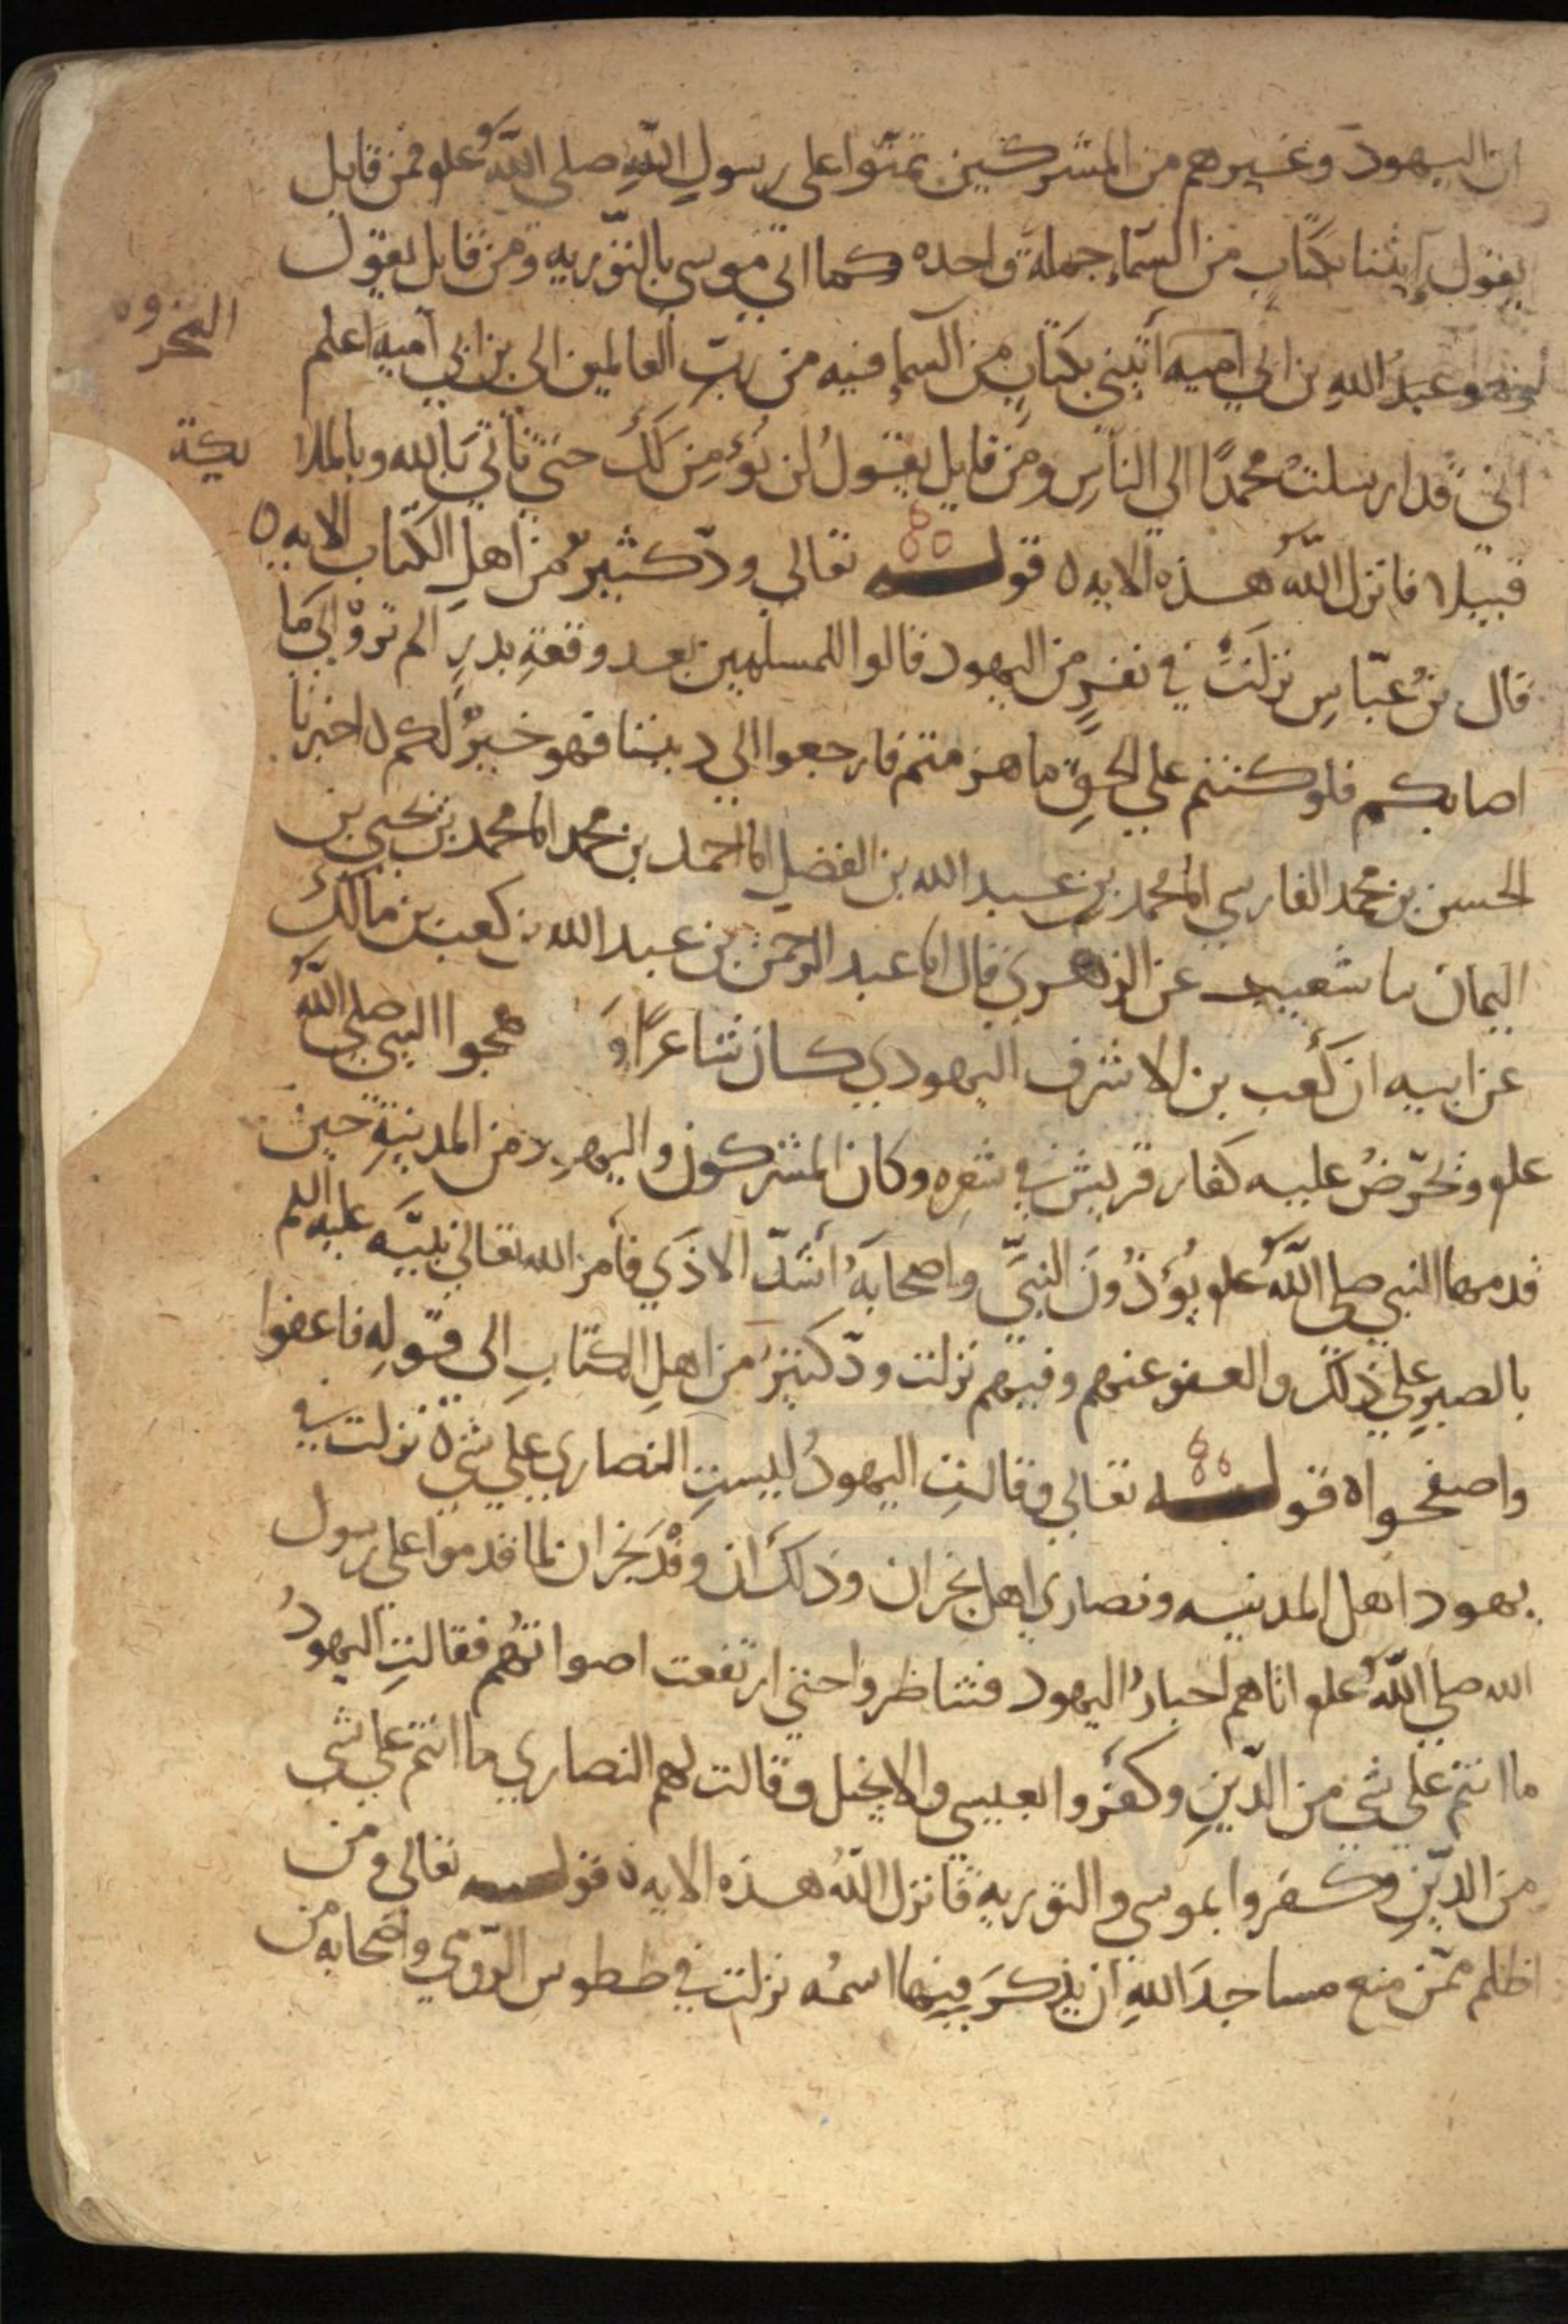 ان اليهود وغيرهم من المشركين تمنّوا على رسولِ اللهِ صلى اللهُ علو فمن قايل
يقول إيتنا بكتابٍ من السّماءِ جملةً واحده كما اتي موسى بالتّوريه ومن قايل يقول
وهو عبدُ اللهِ بن ابي اميه أئتني بكتابٍ من السماءِ فيه من ربّ العالمين الى بن ابي اميه اعلم
المخزو
انّي قد ارسلتُ محمدًا الي الناسِ ومن قايل يقولُ لن نُؤمِنَ لَكَ حتي تأتي بالله وبالملا يكة
قبيلا فانزل اللهُ هذه الايه ه قوله تعالي ودّ كثيرٌ من اهلِ الكتاب الايه ه
قال بن عبّاسٍ نزلَتْ في نفرٍ من اليهود قالوا للمسلمين بعد وقعةِ بدرٍ الم تروْا الي ما
اصابكم فلو كنتم علي الحقِّ ما هزمتم فارجعوا الي ديننا فهو خيرٌ لكم ه اخبرنا
الحسن بن محمد الفارسي انا محمد بن عبد الله بن الفضل انا احمد بن محمد انا محمد بن يحيي بن
اليمان نا شعيب عن الزهري قال انا عبد الرحمن بن عبد الله بن كعب بن مالك
عن ابيه ان كَعب بن الاشرف اليهودي كان شاعرًا وَ هجوا النبي صلى اللهُ
علو ويحرّضُ عليه كفار قريش في شعرِه وكان المشركون واليهود من المدينةِ حين
قدمها النبي صلى اللهُ علو يُؤذُونَ النبيَّ واصحابَهُ اشدّ الاذَي فأمر الله تعالي نبيَّه عليه السلم
بالصبرِ علي ذلك والعفو عنهم وفيهم نزلت ودّ كثيرٌ من اهلِ الكتابِ الى قولِهِ فاعفوا
واصفحوا ه قوله تعالي وقالتِ اليهودُ ليستِ النصاري علي شيءٍ نزلت في
يهود اهل المدينه ونصاري اهل نجران وذلك ان وفْدَ نجران لما قدموا علي رسول
الله صلي اللهُ علو اتاهم احبارُ اليهود فتناظروا حتي ارتفعت اصواتُهُم فقالتِ اليهودُ
ما انتم علي شي من الدّينِ وكفروا بعيسي والانجيل وقالت لهم النصاري ما انتم علي شي
من الدّينِ وكفروا بموسى والتوريه فانزل اللهُ هذه الايه ه قوله تعالي ومن
اظلم ممّن منع مساجدَ اللهِ ان يذكرَ فيها اسمُه نزلت في ططوس الرّومي واصحابه من